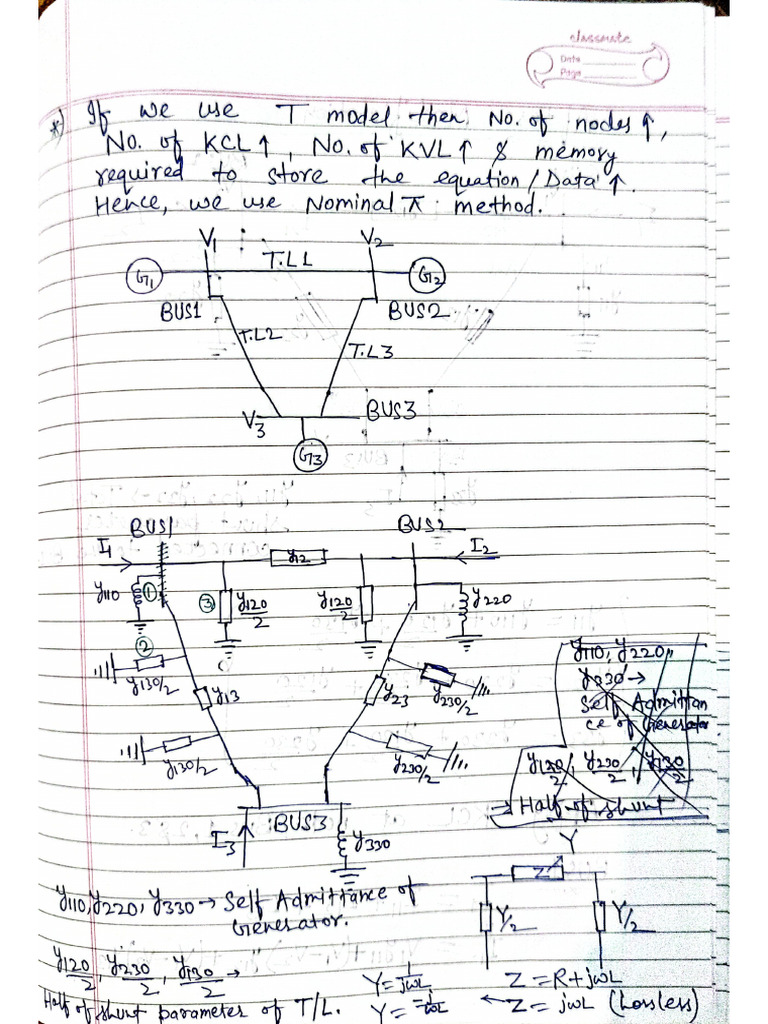 classmate
Date
Page
*) If we use T model then No. of nodes ↑,
No. of KCL ↑, No. of KVL ↑ & memory
required to store the equation/Data ↑.
Hence, we use Nominal π method.
V1 V2
T.L1
G1 G2
BUS1 BUS2
T.L2
T.L3
V3 BUS3
G3
BUS1 BUS2
I1 y12 I2
y110 ① ③ y120/2 y120/2 y220
②
y130/2 y13 y23 y230/2
y130/2 y230/2
y110, y220,
y330 →
Self Admittan
ce of Generator
y120/2, y230/2, y130/2
→ Half of shunt
BUS3
I3 y330
Y
Z
Y/2 Y/2
y110, y220, y330 → Self Admittance of
Generator.
y120/2, y230/2, y130/2 →
Half of shunt parameter of T/L.
Y = 1/jωL Z = R + jωL
Y = -j/ωL ← Z = jωL (Lossless)